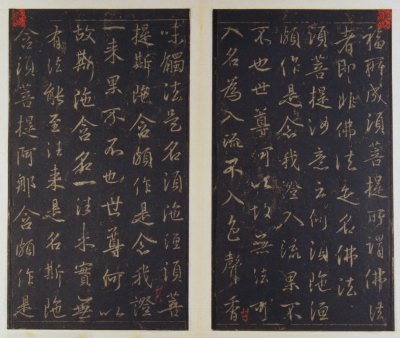 福所成須菩提所謂佛法
者即非佛法是名佛法
須菩提於意云何須陁洹
頗作是念我證入流果不
不也世尊何以故無法可
入名為入流不入色聲香
味觸法是名須陁洹須菩
提斯陁含頗作是念我證
一来果不不也世尊何以
故斯陁含名一往来實無
有法能至往来是名斯陁
含須菩提阿那含頗作是